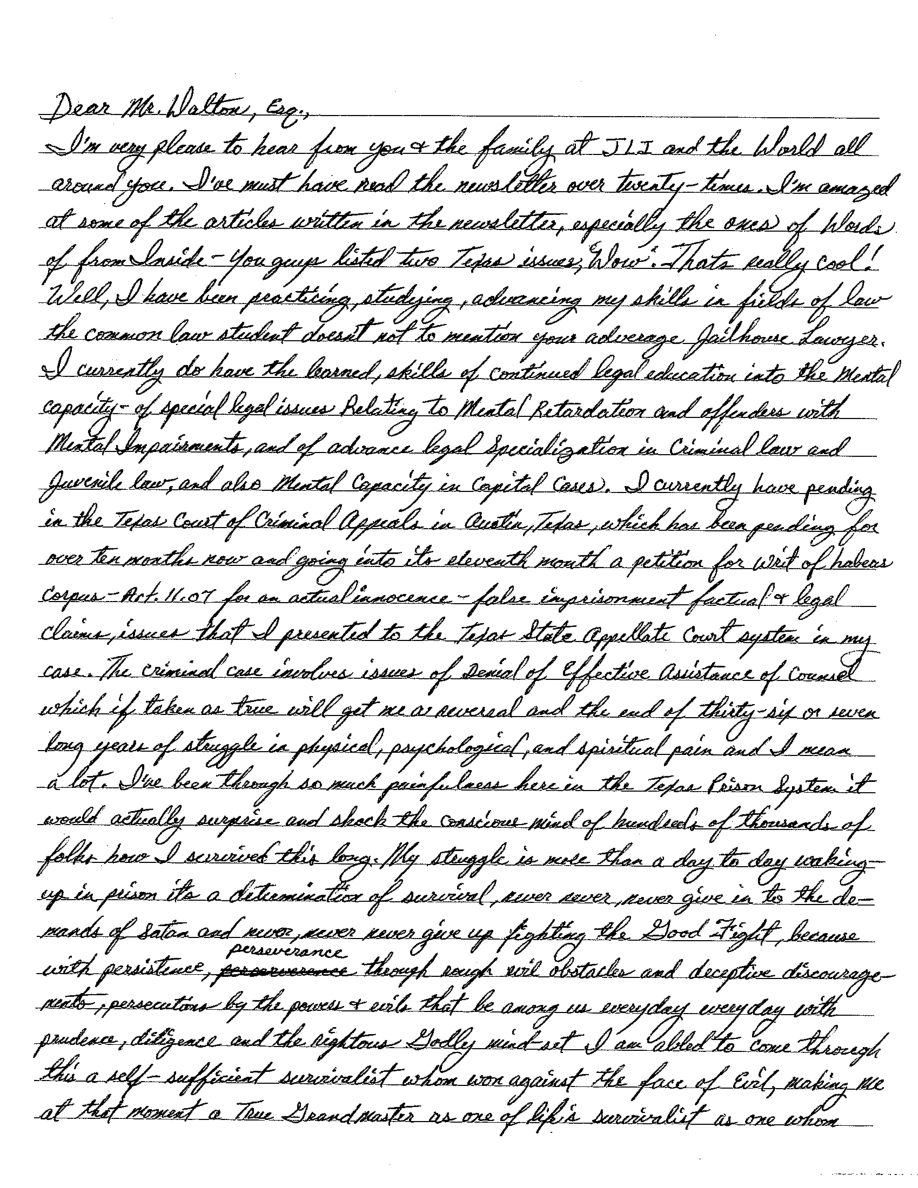 Dear Mr. Walton, Esq.,
I'm very please to hear from you & the family at JLI and the World all
around you. I've must have read the newsletter over twenty-times. I'm amazed
at some of the articles written in the newsletter, especially the ones of Words
of from Inside - You guys listed two Texas issues, "Wow". Thats really cool!
Well, I have been practicing, studying, advancing my skills in fields of law
the common law student doesn't not to mention your adverage Jailhouse Lawyer.
I currently do have the learned, skills of continued legal education into the Mental
capacity - of special legal issues Relating to Mental Retardation and offenders with
Mental Impairments, and of advance legal Specialization in Criminal law and
Juvenile law, and also Mental Capacity in Capital Cases. I currently have pending
in the Texas Court of Criminal Appeals in Austin, Texas, which has been pending for
over ten months now and going into its eleventh month a petition for writ of habeas
corpus - Act. 11.07 for an actual innocence - false imprisonment factual & legal
claims, issues that I presented to the Texas State Appellate Court system in my
case. The criminal case involves issues of Denial of Effective Assistance of Counsel
which if taken as true will get me a reversal and the end of thirty-six or seven
long years of struggle in physical, psychological, and spiritual pain and I mean
a lot. I've been through so much painfulness here in the Texas Prison System it
would actually surprise and shock the conscious mind of hundreds of thousands of
folks how I survived this long. My struggle is more than a day to day waking-
up in prison its a determination of survival, never never, never give in to the de-
mands of Satan and never, never never give up fighting the Good Fight, because
with persistence, perseverance through rough evil obstacles and deceptive discourage-
ments, persecutions by the powers & evils that be among us everyday everyday with
prudence, diligence and the rightous Godly mind set I am abled to come through
this a self-sufficient survivalist whom won against the face of Evil, making me
at that moment a True Grandmaster as one of life's survivalist as one whom